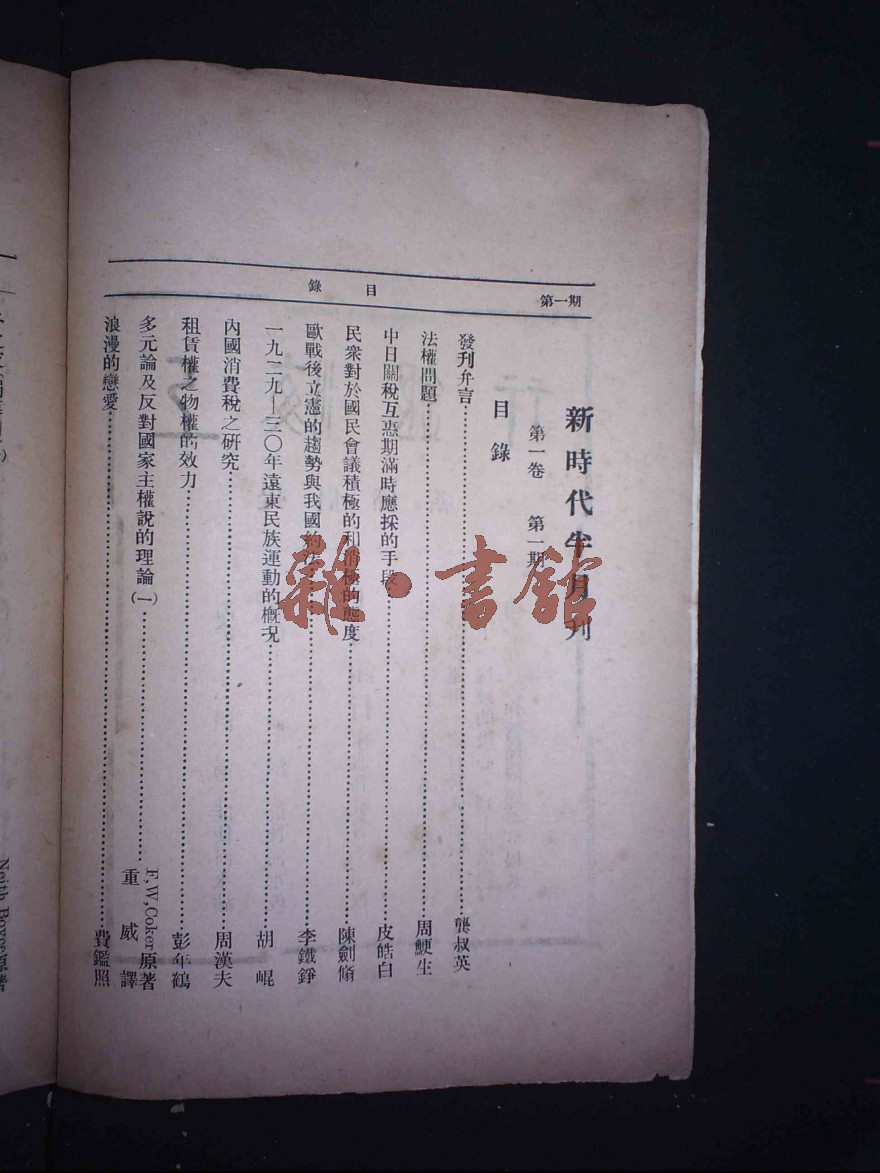 第一期
目錄
新時代半月刊
第一卷 第一期
目錄
發刊弁言……龔叔英
法權問題……周鯁生
中日關稅互惠期滿時應採的手段……皮皓白
民衆對於國民會議積極的和消極的態度……陳劍翛
歐戰後立憲的趨勢與我國約法……李鐵錚
一九二九—三〇年遠東民族運動的槪況……胡崐
內國消費稅之硏究……周漢夫
租賃權之物權的效力……彭年鶴
多元論及反對國家主權說的理論(一)……F,W,Coker原著
重威譯
浪漫的戀愛……費鑑照
雜·書館
Neith Boyce原著